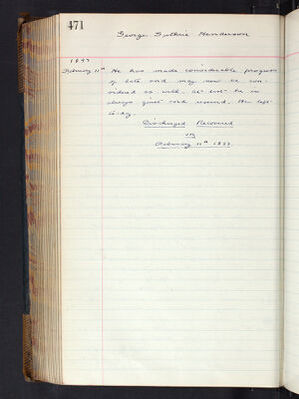 471
George Guthrie Henderson
1897
February 11th He has made considerable progress
of late and may now be con-
sidered as well. At he is
always quiet and. He left
to-day.
Discharged Recovered
on
February 11th 1897.